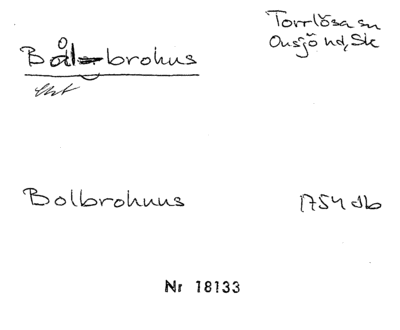 Torrlösa sn
Onsjö hd, Sk
Bålbrohus
Bolbrohuus
1754 db
Nr 18133